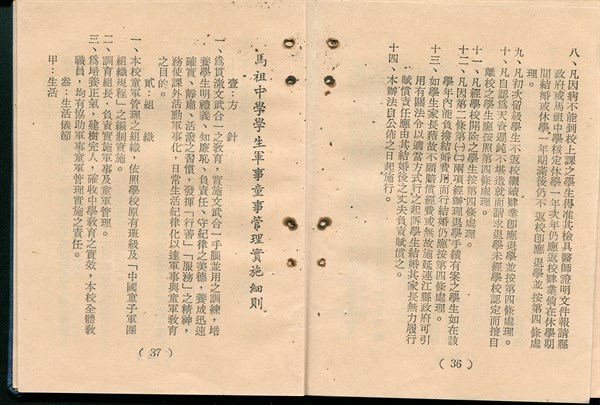 八、凡因病不能到校上課之學生得准其檢具醫師證明文件報請縣
政府或馬祖中學核定休學一年次年仍應返校肄業倘在休學期
間結婚或休學一年期滿後仍不返校即應退學並按第四條處
理。
九、凡初次留級學生不返校繼續肄業即應退學並按第四條處理。
十、凡自認爲天資遲鈍不堪造就而請求退學未經學校認定而擅自
離校之學生應按照第四條處理。
十一、凡經學校開除之學生按第四條處理。
十二、凡因第二條第㈠㈡兩項經辦理退學手續有案之學生如在該
學年內能負擔結婚費用而行結婚仍應按第四條處理。
十三、如學生家長藉故不願賠償經費或無故施延連江縣政府可引
用有關法令以適當方式行之起訴學生結婚其家長無力履行
賦償責任應由其結婚後之丈夫負責賦償之。
十四、本辦法自公佈之日起施行。
( 36 )
馬祖中學學生軍事童事管理實施細則
壹：方針
一、爲貫澈文武合一之教育，實施文武合一手腦並用之訓練，培
養學生明禮義、知廉恥、負責任、守紀律之美德，養成迅速
確實、靜肅、活潑之習慣，發揮「行善」「服務」之精神，
務使課外活動軍事化，日常生活紀律化以達軍事與童軍教育
之目的。
貳：組織
一、本校童軍管理之組織，依照學校原有班級及「中國童子軍團
組織規程」之編制實施。
二、訓育組長，負責實施軍事及童軍管理。
三、爲培養正氣，建樹完人，確收中學教育之實效，本校全體教
職員，均有協助軍事童軍管理實施之責任。
叁：生活儀節
甲：生活
( 37 )